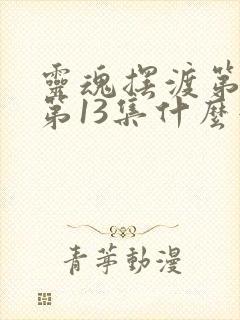 靈魂摆渡第
第13集什麼
青苹動漫